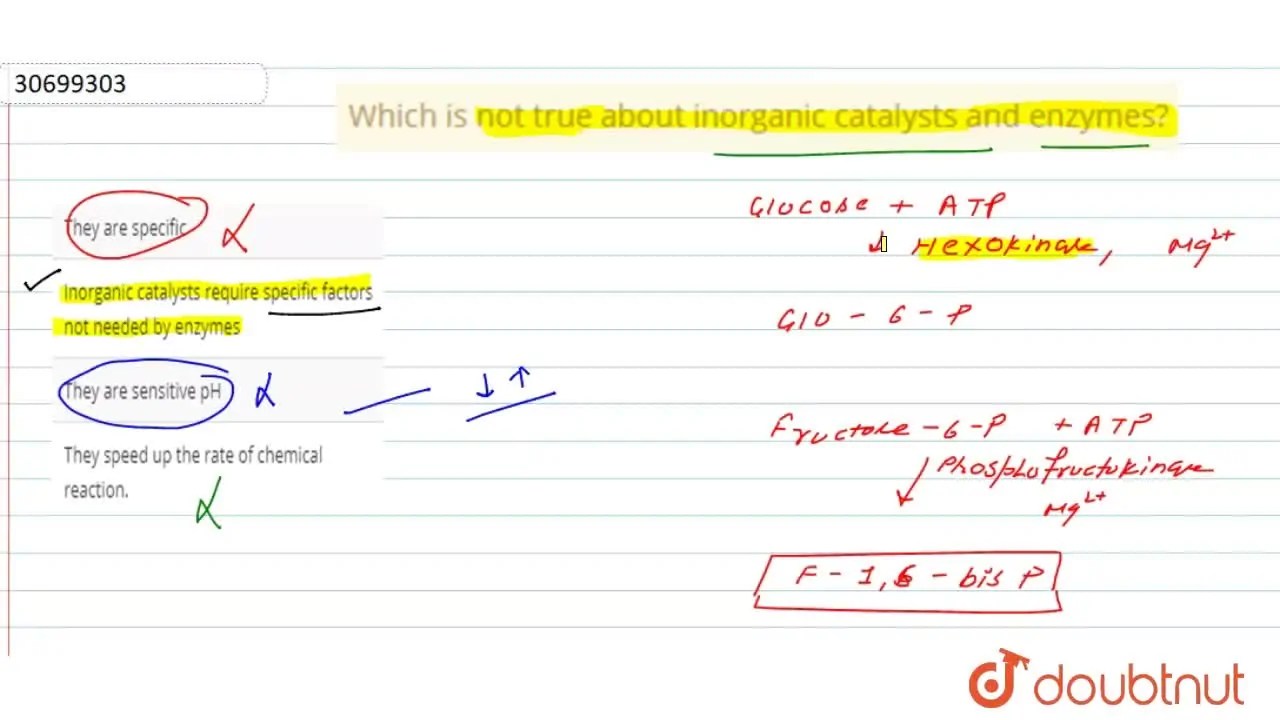 30699303
Which is not true about inorganic catalysts and enzymes?
They are specific
Inorganic catalysts require specific factors
not needed by enzymes
They are sensitive pH
They speed up the rate of chemical
reaction.
Glucose + ATP
↓ Hexokinase, Mg2+
Glu - 6 - P
Fructose - 6 - P + ATP
↓ Phosphofructokinase
Mg2+
F - 1, 6 - bis P
doubtnut